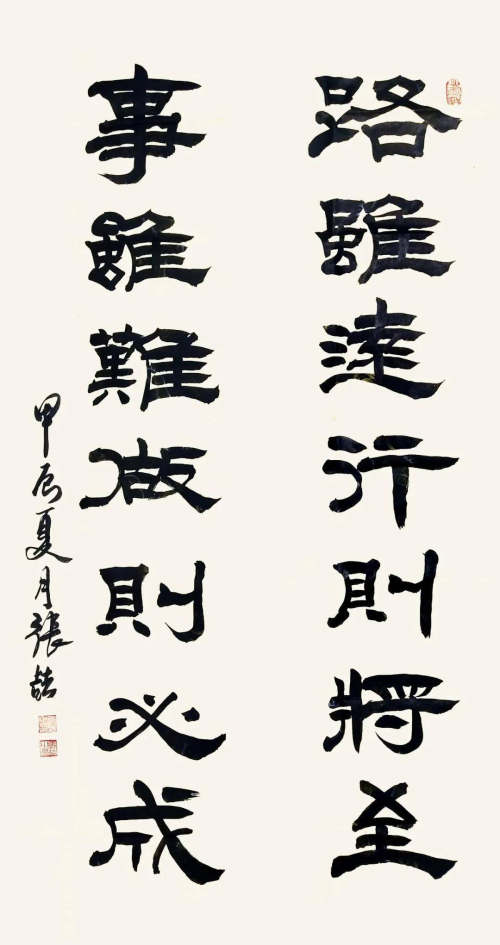 路雖遠行則將至
事雖難做則必成
甲辰夏月張